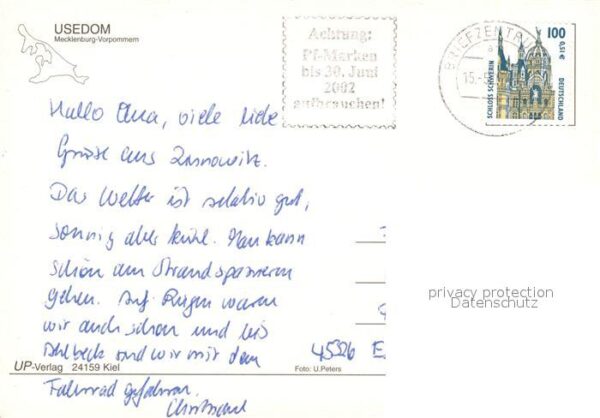 USEDOM
Mecklenburg-Vorpommern
Achtung:
Pf-Marken
bis 30. Juni
2002
aufbrauchen!
BRIEFZENTR
15.
100
0,51€
SCHLOSS SCHWERIN
DEUTSCHLAND
Hallo Oma, viele liebe
Grüße aus Zinnowitz.
Das Wetter ist relativ gut,
sonnig aber kühl. Man kann
schön am Strand spazieren
gehen. Auf Rügen waren
wir auch schon und bis
Ahlbeck sind wir mit dem
Fahrrad gefahren.
Christiane
45326 E
privacy protection
Datenschutz
UP-Verlag 24159 Kiel
Foto: U.Peters